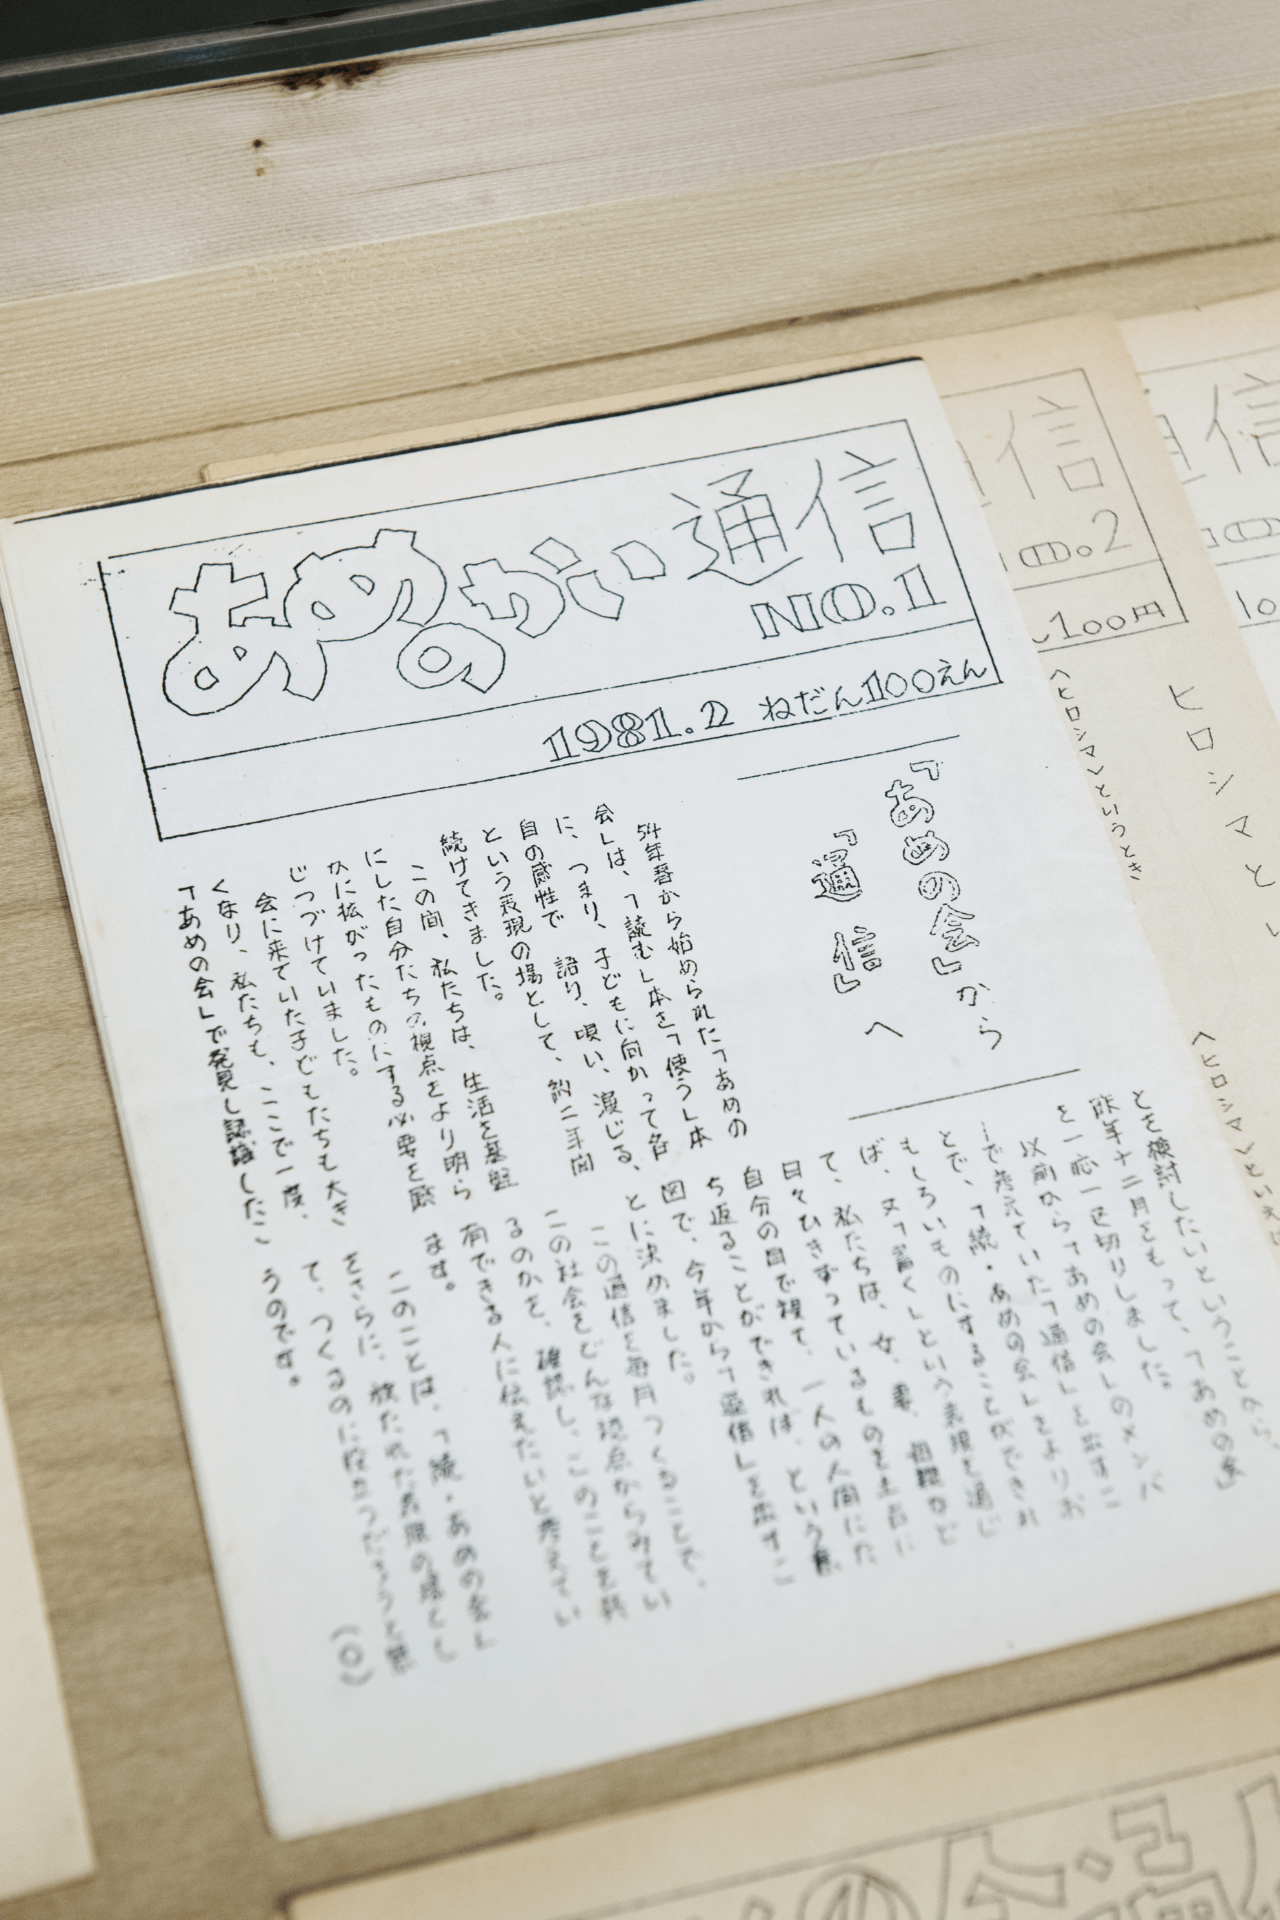 あめのかい通信
NO.1
1981.2 ねだん100えん
「あめの会」から
「通信」へ
54年春から始められた「あめの
会」は、「読む」本を「使う」本
に、つまり、子どもに向かって各
自の感性で 語り、唄い、演じる、
という表現の場として、約二年間
続けてきました。
この間、私たちは、生活を基盤
にした自分たちの視点をより明ら
かに拡がったものにする必要を感
じつづけていました。
会に来ていた子どもたちも大き
くなり、私たちも、ここで一度、
「あめの会」で発見し認識したこ
とを検討したいということから、
昨年十二月をもって、「あめの会」
を一応一区切りしました。
以前から「あめの会」のメンバ
ーで考えていた「通信」を出すこ
とで、「続・あめの会」をよりお
もしろいものにすることができれ
ば、又「書く」という表現を通じ
て、私たちは、女、妻、母親など
日々ひきずっているものを土台に
自分の目で視て、一人の人間にた
ち返ることができれば、という意
図で、今年から「通信」を出すこ
とに決めました。
この通信を毎月つくることで、
この社会をどんな視点からみてい
るのかを、確認し、このことを共
有できる人に伝えたいと考えてい
ます。
このことは、「続・あめの会」
をさらに、放たれた表現の場とし
て、つくるのに役立つだろうと思
うのです。
(O)
通信
NO.2
100円
ヒロシマとい
へヒロシマンというとき
へヒロシマンといえば
信
10